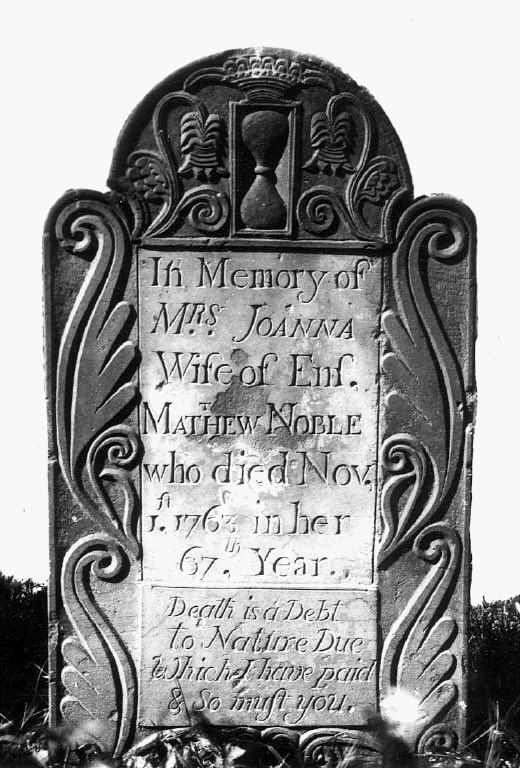 In Memory of
Mʀˢ· Joanna
Wife of Enſ.
Mathew Noble
who died Nov.
1.ſt 1763 in her
67.th Year.
Death is a Debt
to Nature Due
Which I have paid
& So muſt you.